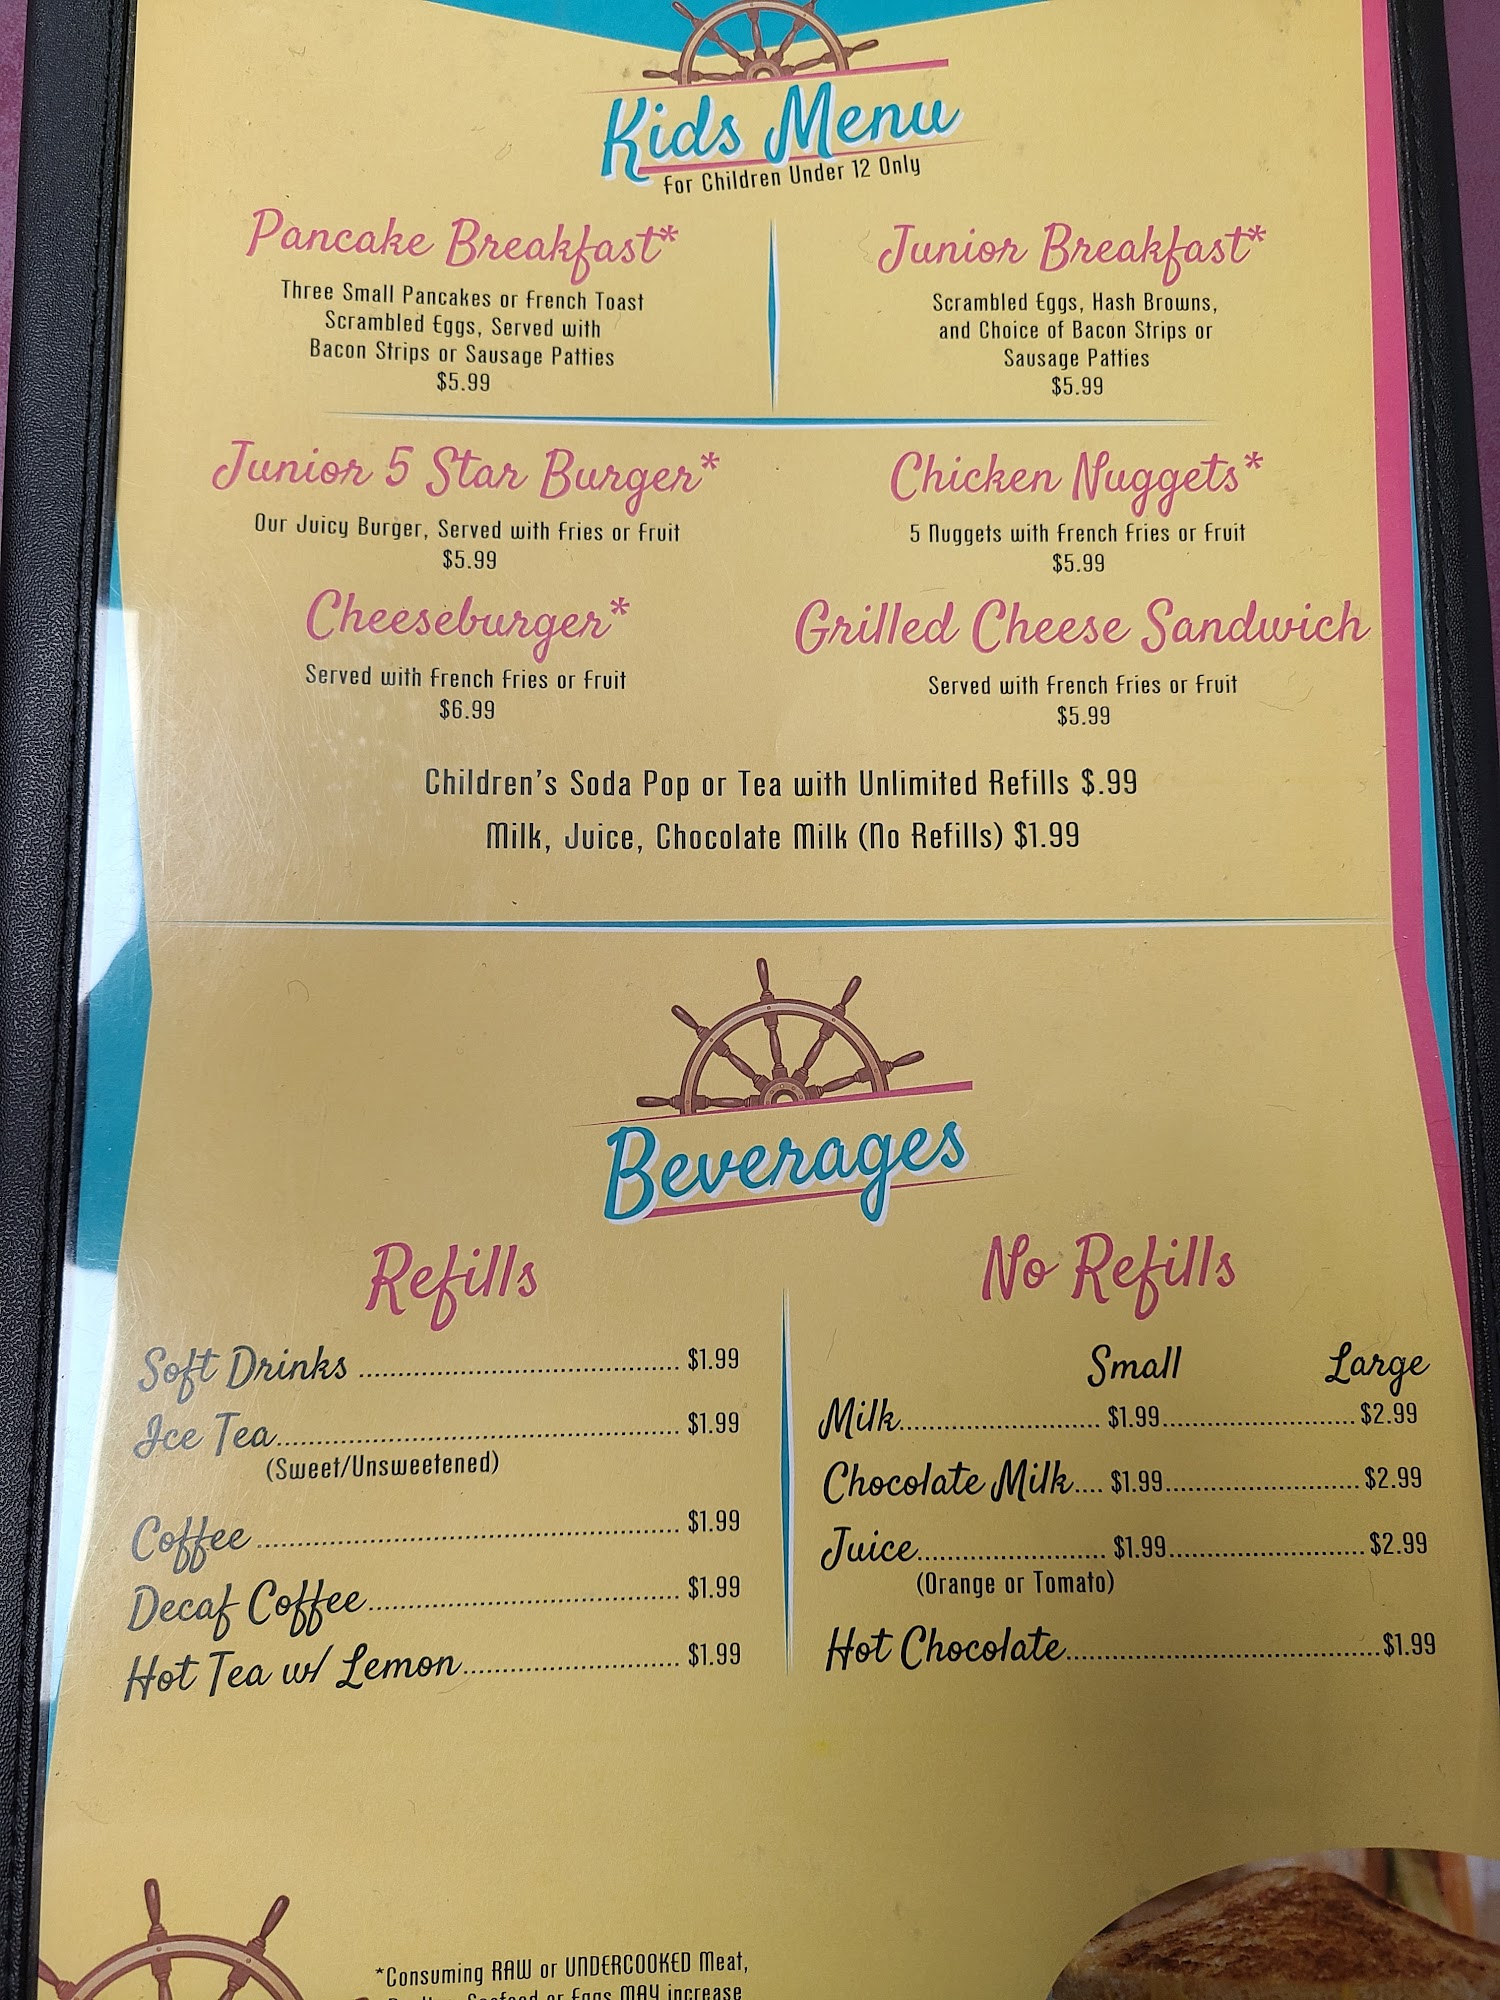 Kids Menu
For Children Under 12 Only
Pancake Breakfast*
Three Small Pancakes or French Toast
Scrambled Eggs, Served with
Bacon Strips or Sausage Patties
$5.99
Junior Breakfast*
Scrambled Eggs, Hash Browns,
and Choice of Bacon Strips or
Sausage Patties
$5.99
Junior 5 Star Burger*
Our Juicy Burger, Served with Fries or Fruit
$5.99
Chicken Nuggets*
5 Nuggets with French Fries or Fruit
$5.99
Cheeseburger*
Served with French Fries or Fruit
$6.99
Grilled Cheese Sandwich
Served with French Fries or Fruit
$5.99
Children's Soda Pop or Tea with Unlimited Refills $.99
Milk, Juice, Chocolate Milk (No Refills) $1.99
Beverages
Refills
Soft Drinks ........ $1.99
Ice Tea ........ $1.99
(Sweet/Unsweetened)
Coffee ........ $1.99
Decaf Coffee ........ $1.99
Hot Tea w/ Lemon ........ $1.99
No Refills
Small Large
Milk ........ $1.99 ........ $2.99
Chocolate Milk .... $1.99 ........ $2.99
Juice ........ $1.99 ........ $2.99
(Orange or Tomato)
Hot Chocolate ........ $1.99
*Consuming RAW or UNDERCOOKED Meat,
Seafood or Eggs MAY increase